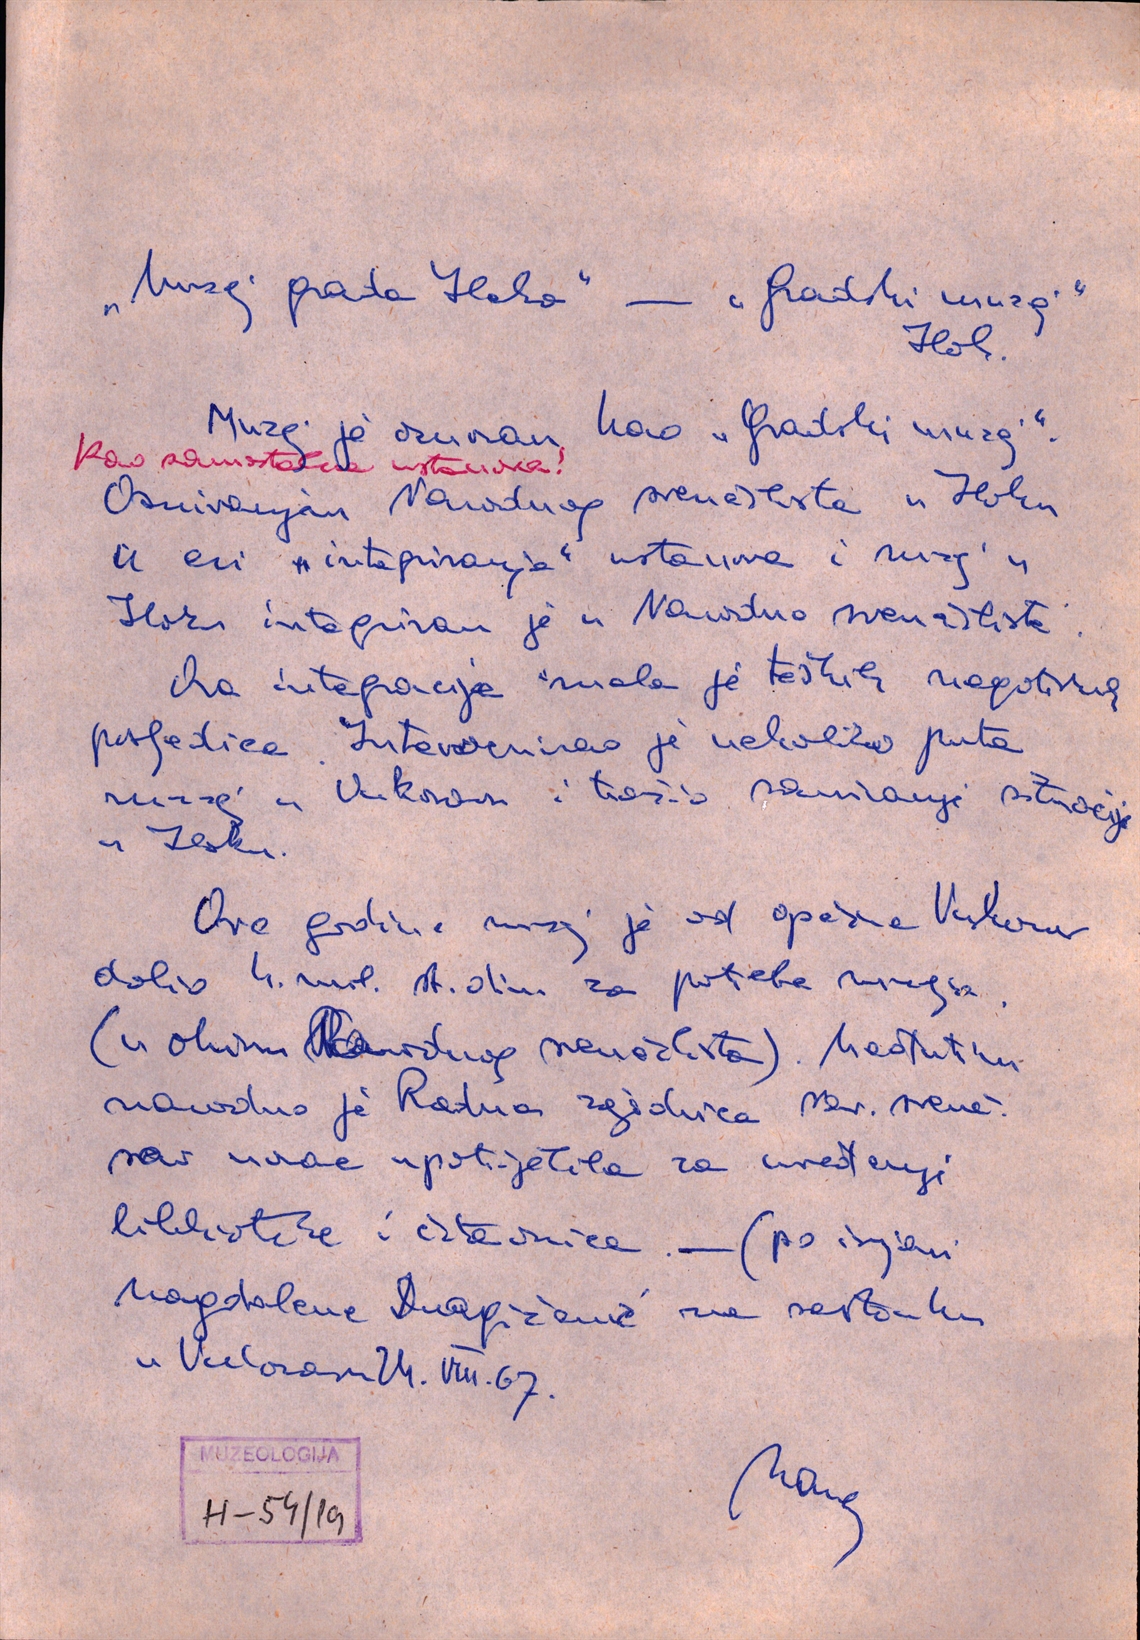 „Muzej grada Iloka“ — „Gradski muzej“
Ilok.
Muzej je osnovan kao „Gradski muzej“.
Kao samostalna ustanova!
Osnivanjem Narodnog sveučilišta u Iloku
u eri „integriranja“ ustanova i muzej u
Iloku integriran je u Narodno sveučilište.
Ova integracija imala je teških negativnih
posljedica. Intervenirao je nekoliko puta
muzej u Vukovaru i tražio saniranje situacije
u Iloku.
Ove godine muzej je od općine Vukovar
dobio 4. mil. st. din. za potrebe muzeja.
(u okviru Narodnog sveučilišta). Međutim
navodno je Radna zajednica Nar. sveuč.
sav novac upotrijebila za uređenje
biblioteke i čitaonice. — (po izjavi
Magdalene na sastanku
u Vukovaru 24. VIII. 67.
MUZEOLOGIJA
H-54/19